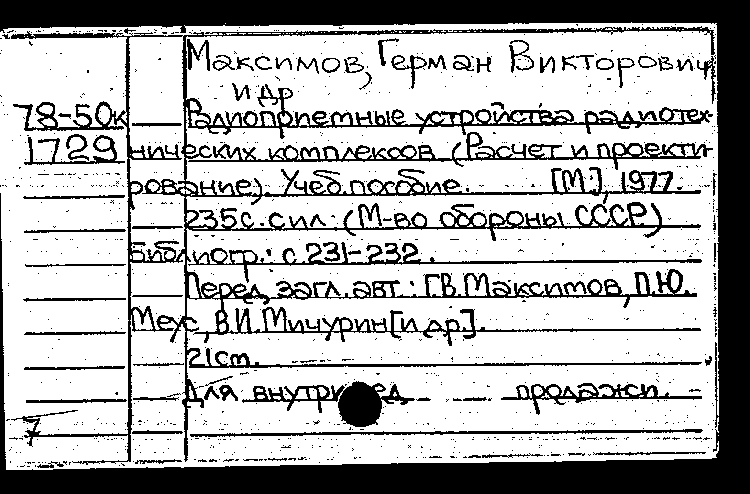 Максимов, Герман Викторович
и др
78-50к Радиоприемные устройства радиотех-
1729 нических комплексов (Расчет и проекти-
рование). Учеб. пособие. [М.], 1977.
235с. с ил. (М-во обороны СССР)
Библиогр.: с 231-232.
Перед загл. авт.: Г.В. Максимов, П.Ю.
Меус, В.И. Мичурин [и др.].
21см.
Для продажи.
7